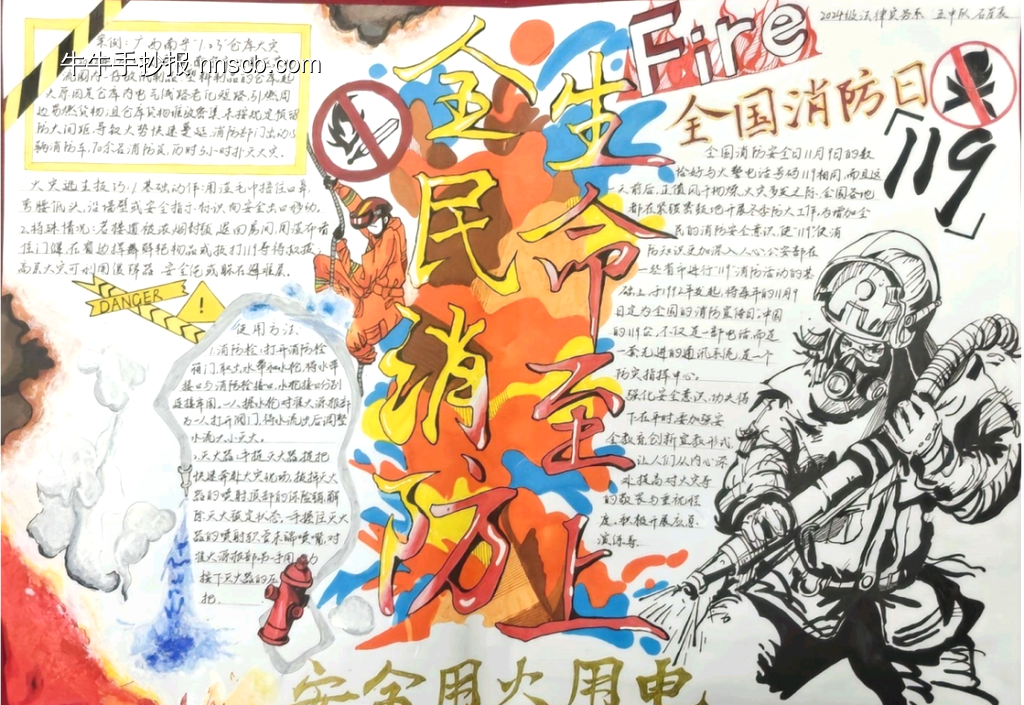 2024级法律实务系
Fire
全国消防日
「119」
全民消防
生命至上
案例:广西南宁"1.03"仓库大灾
牛牛手抄报 nnscb.com
大原因是仓库内电气线路老化短路,引燃周
边易燃货物,且仓库货物堆放密集,未按规定预留
防火间距,导致火势快速蔓延,消防部门出动15
辆消防车,70余名消防员,历时5小时扑灭大灾.
火灾逃生技巧:1.基础动作:用湿毛巾捂住口鼻,
弯腰低头,沿墙壁或安全指示标识向安全出口移动.
2.特殊情况:若楼道被浓烟封锁,返回房间,用湿布堵
住门缝,在窗边挥舞鲜艳物品或拨打119等待救援;
DANGER
使用方法.
1.消防栓:打开消防栓
箱门,取出水带和水枪,将水带
接口与消防栓接口,水枪接口分别
连接牢固.一人握水枪对准火源根部
另一人打开阀门,待水流出后调整
水流大小灭火.
2.灭火器:手提灭火器提把
快速奔赴火灾现场,拔掉灭火
器的喷射顶部的保险销,解
除灭火锁定状态,一手握住灭火
器的喷射软管末端喷嘴,对
准火源根部另一手用力
按下灭火器的压
把.
全国消防安全日11月9日的数
恰好与火警电话号码119相同,而且这
一天前后,正值风干物燥,火灾多发之际,全国各地
都在紧锣密鼓地开展冬季防火工作,为增加全
民的消防安全意识,使"119"使消
防知识更加深入人心,公安部在
一些省市进行"119"消防活动的基
础上,于1992年发起,将每年的11月9
日定为全国的消防宣传日,中国
的119台,不仅是一部电话,而是
一套先进的通讯系统,是一个
防灾指挥中心.
强化安全意识,功夫得
下在平时要加强安
全教育创新宣教形式,
让人们从内心深
处提高对火灾等
的敬畏与重视程
度,积极开展应急
演练等.
安全用火用电